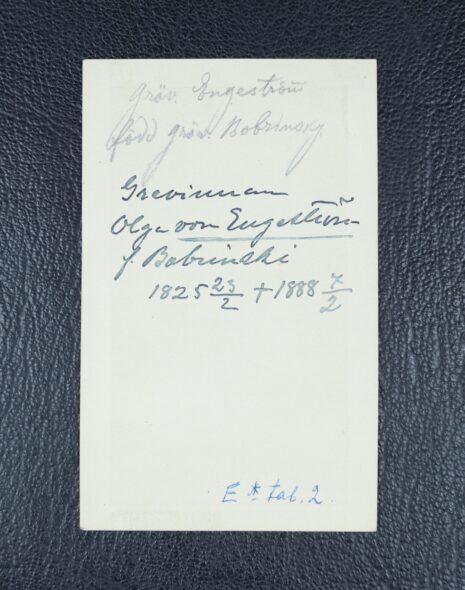 gräv. Engeström
född gräv. Bobrinsky
Grevinnan
Olga von Engeström
f. Bobrinski
1825 23/2 + 1888 7/2
E * tab. 2.